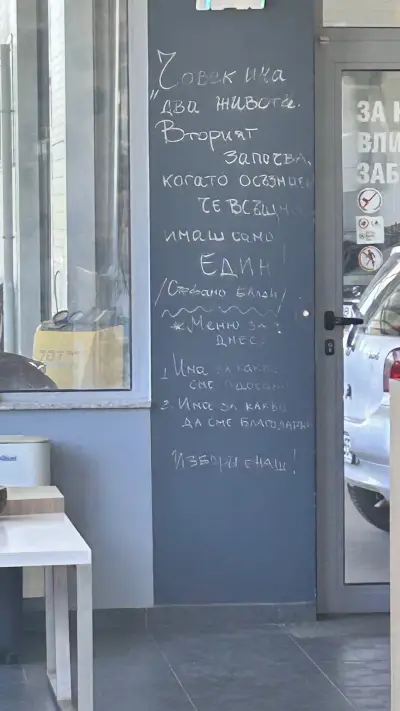 Човек има
"два живота.
Вторият
започва,
когато осъзнаеш
че всъщност
имаш само
ЕДИН
/Стефано Балди/
*Меню за
днес:
1. Има за какво
сме
2. Има за какво
да сме благодарни
Избори е наш!
ЗА